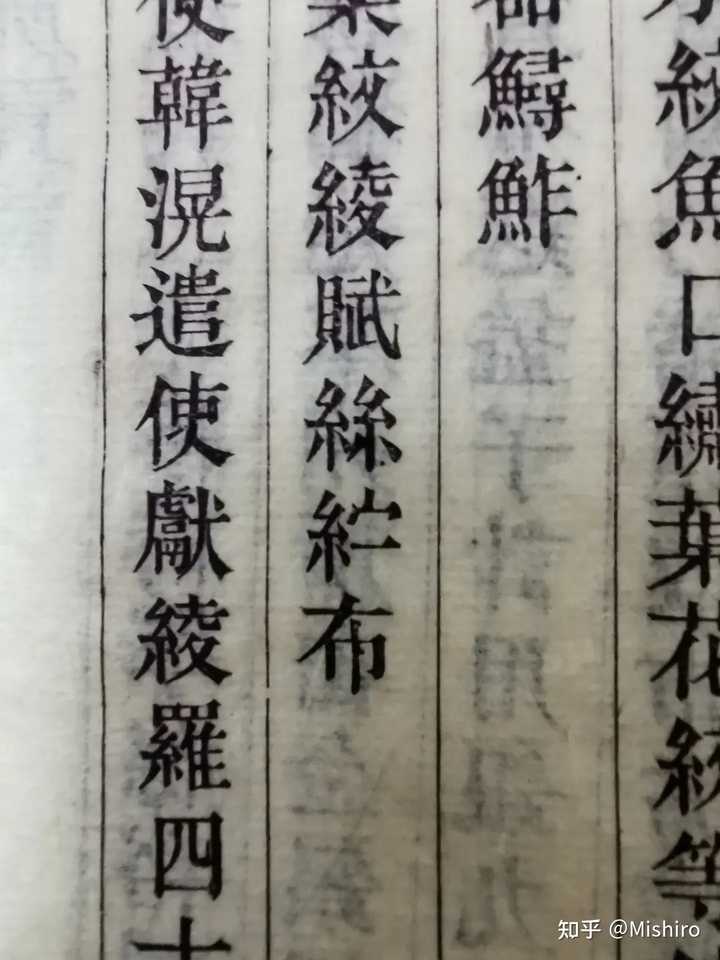 紋魚口繡葉花紋等
鱘鮓
紋綾賦絲紵布
使韓滉遣使獻綾羅四十
知乎 @Mishiro